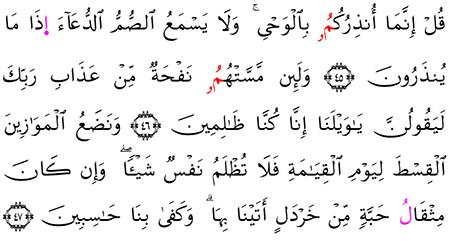 قُلْ إِنَّمَا أُنذِرُكُمُۥ بِالْوَحْىِ ۚ وَلَا يَسْمَعُ الصُّمُّ الدُّعَآءَ اِذَا مَا
يُنذَرُونَ ٤٥ وَلَئِن مَّسَّتْهُمُۥ نَفْحَةٌ مِّنْ عَذَابِ رَبِّكَ
لَيَقُولُنَّ يَٰوَيْلَنَا إِنَّا كُنَّا ظَٰلِمِينَ ٤٦ وَنَضَعُ الْمَوَٰزِينَ
الْقِسْطَ لِيَوْمِ الْقِيَٰمَةِ فَلَا تُظْلَمُ نَفْسٌ شَيْـًٔا ۖ وَإِن كَانَ
مِثْقَالُ حَبَّةٍ مِّنْ خَرْدَلٍ أَتَيْنَا بِهَا ۗ وَكَفَىٰ بِنَا حَٰسِبِينَ ٤٧